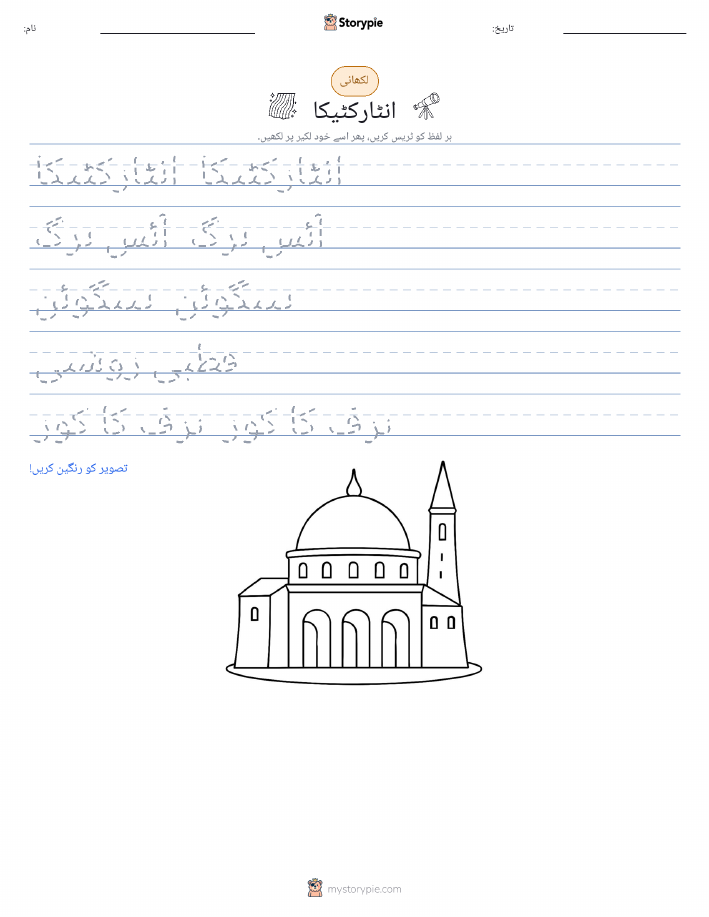 نام:
Storypie
تاریخ:
لکھائی
انٹارکٹیکا
ہر لفظ کو ٹریس کریں، پھر اسے خود لکیر پر لکھیں۔
انٹارکٹیکا انٹارکٹیکا
آئس برگ آئس برگ
پینگوئن پینگوئن
قطبی روشنی
برف کا کور برف کا کور
تصویر کو رنگین کریں!
mystorypie.com